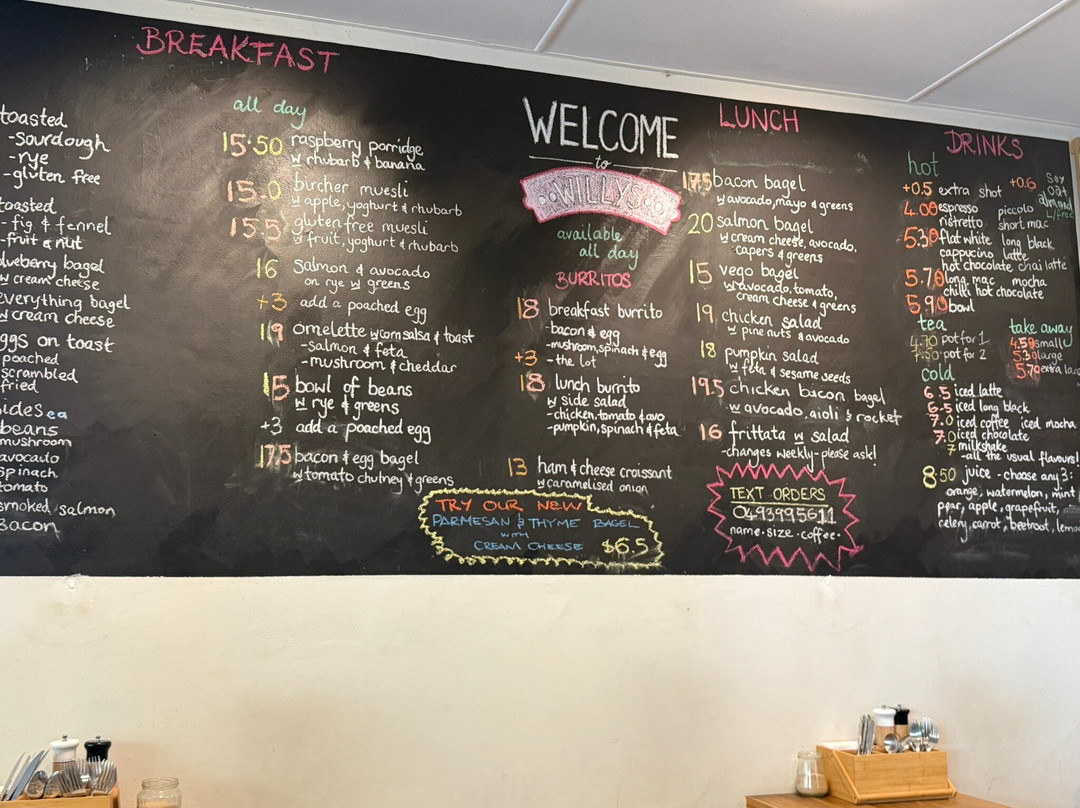 BREAKFAST
toasted
-sourdough
-rye
-gluten free
toasted
-fig & fennel
-fruit & nut
blueberry bagel
w cream cheese
everything bagel
w cream cheese
eggs on toast
poached
scrambled
fried
sides ea
beans
mushroom
avocado
spinach
tomato
smoked salmon
Bacon
all day
15.50 raspberry porridge
w rhubarb & banana
15.0 bircher muesli
w apple, yoghurt & rhubarb
15.5 gluten free muesli
w fruit, yoghurt & rhubarb
16 salmon & avocado
on rye w greens
+3 add a poached egg
19 omelette w corn salsa & toast
-salmon & feta
-mushroom & cheddar
15 bowl of beans
w rye & greens
+3 add a poached egg
17.5 bacon & egg bagel
w tomato chutney & greens
WELCOME
to
WILLYS
available
all day
BURRITOS
18 breakfast burrito
-bacon & egg
-mushroom, spinach & egg
+3 -the lot
18 lunch burrito
w side salad
-chicken, tomato & avo
-pumpkin, spinach & feta
13 ham & cheese croissant
w caramelised onion
TRY OUR NEW
PARMESAN & THYME BAGEL
WITH
CREAM CHEESE $6.5
LUNCH
17.5 bacon bagel
w avocado, mayo & greens
20 salmon bagel
w cream cheese, avocado,
capers & greens
15 vego bagel
w avocado, tomato,
cream cheese & greens
19 chicken salad
w pine nuts & avocado
18 pumpkin salad
w feta & sesame seeds
19.5 chicken bacon bagel
w avocado, aioli & rocket
16 frittata w salad
-changes weekly-please ask!
TEXT ORDERS
0493995611
name.size.coffee.
DRINKS
hot
+0.5 extra shot +0.6 Soy
oat
almond
L/free
4.00 espresso piccolo
ristretto short mac
5.30 flat white long black
cappucino latte
hot chocolate chai latte
5.70 long mac mocha
chilli hot chocolate
5.90 bowl
tea
4.70 pot for 1
7.50 pot for 2
take away
4.50 small
5.30 large
5.70 extra large
cold
6.5 iced latte
6.5 iced long black
7.0 iced coffee iced mocha
7.0 iced chocolate
7 milkshake
-all the usual flavours!
8.50 juice - choose any 3:
orange, watermelon, mint
pear, apple, grapefruit,
celery, carrot, beetroot, lemon